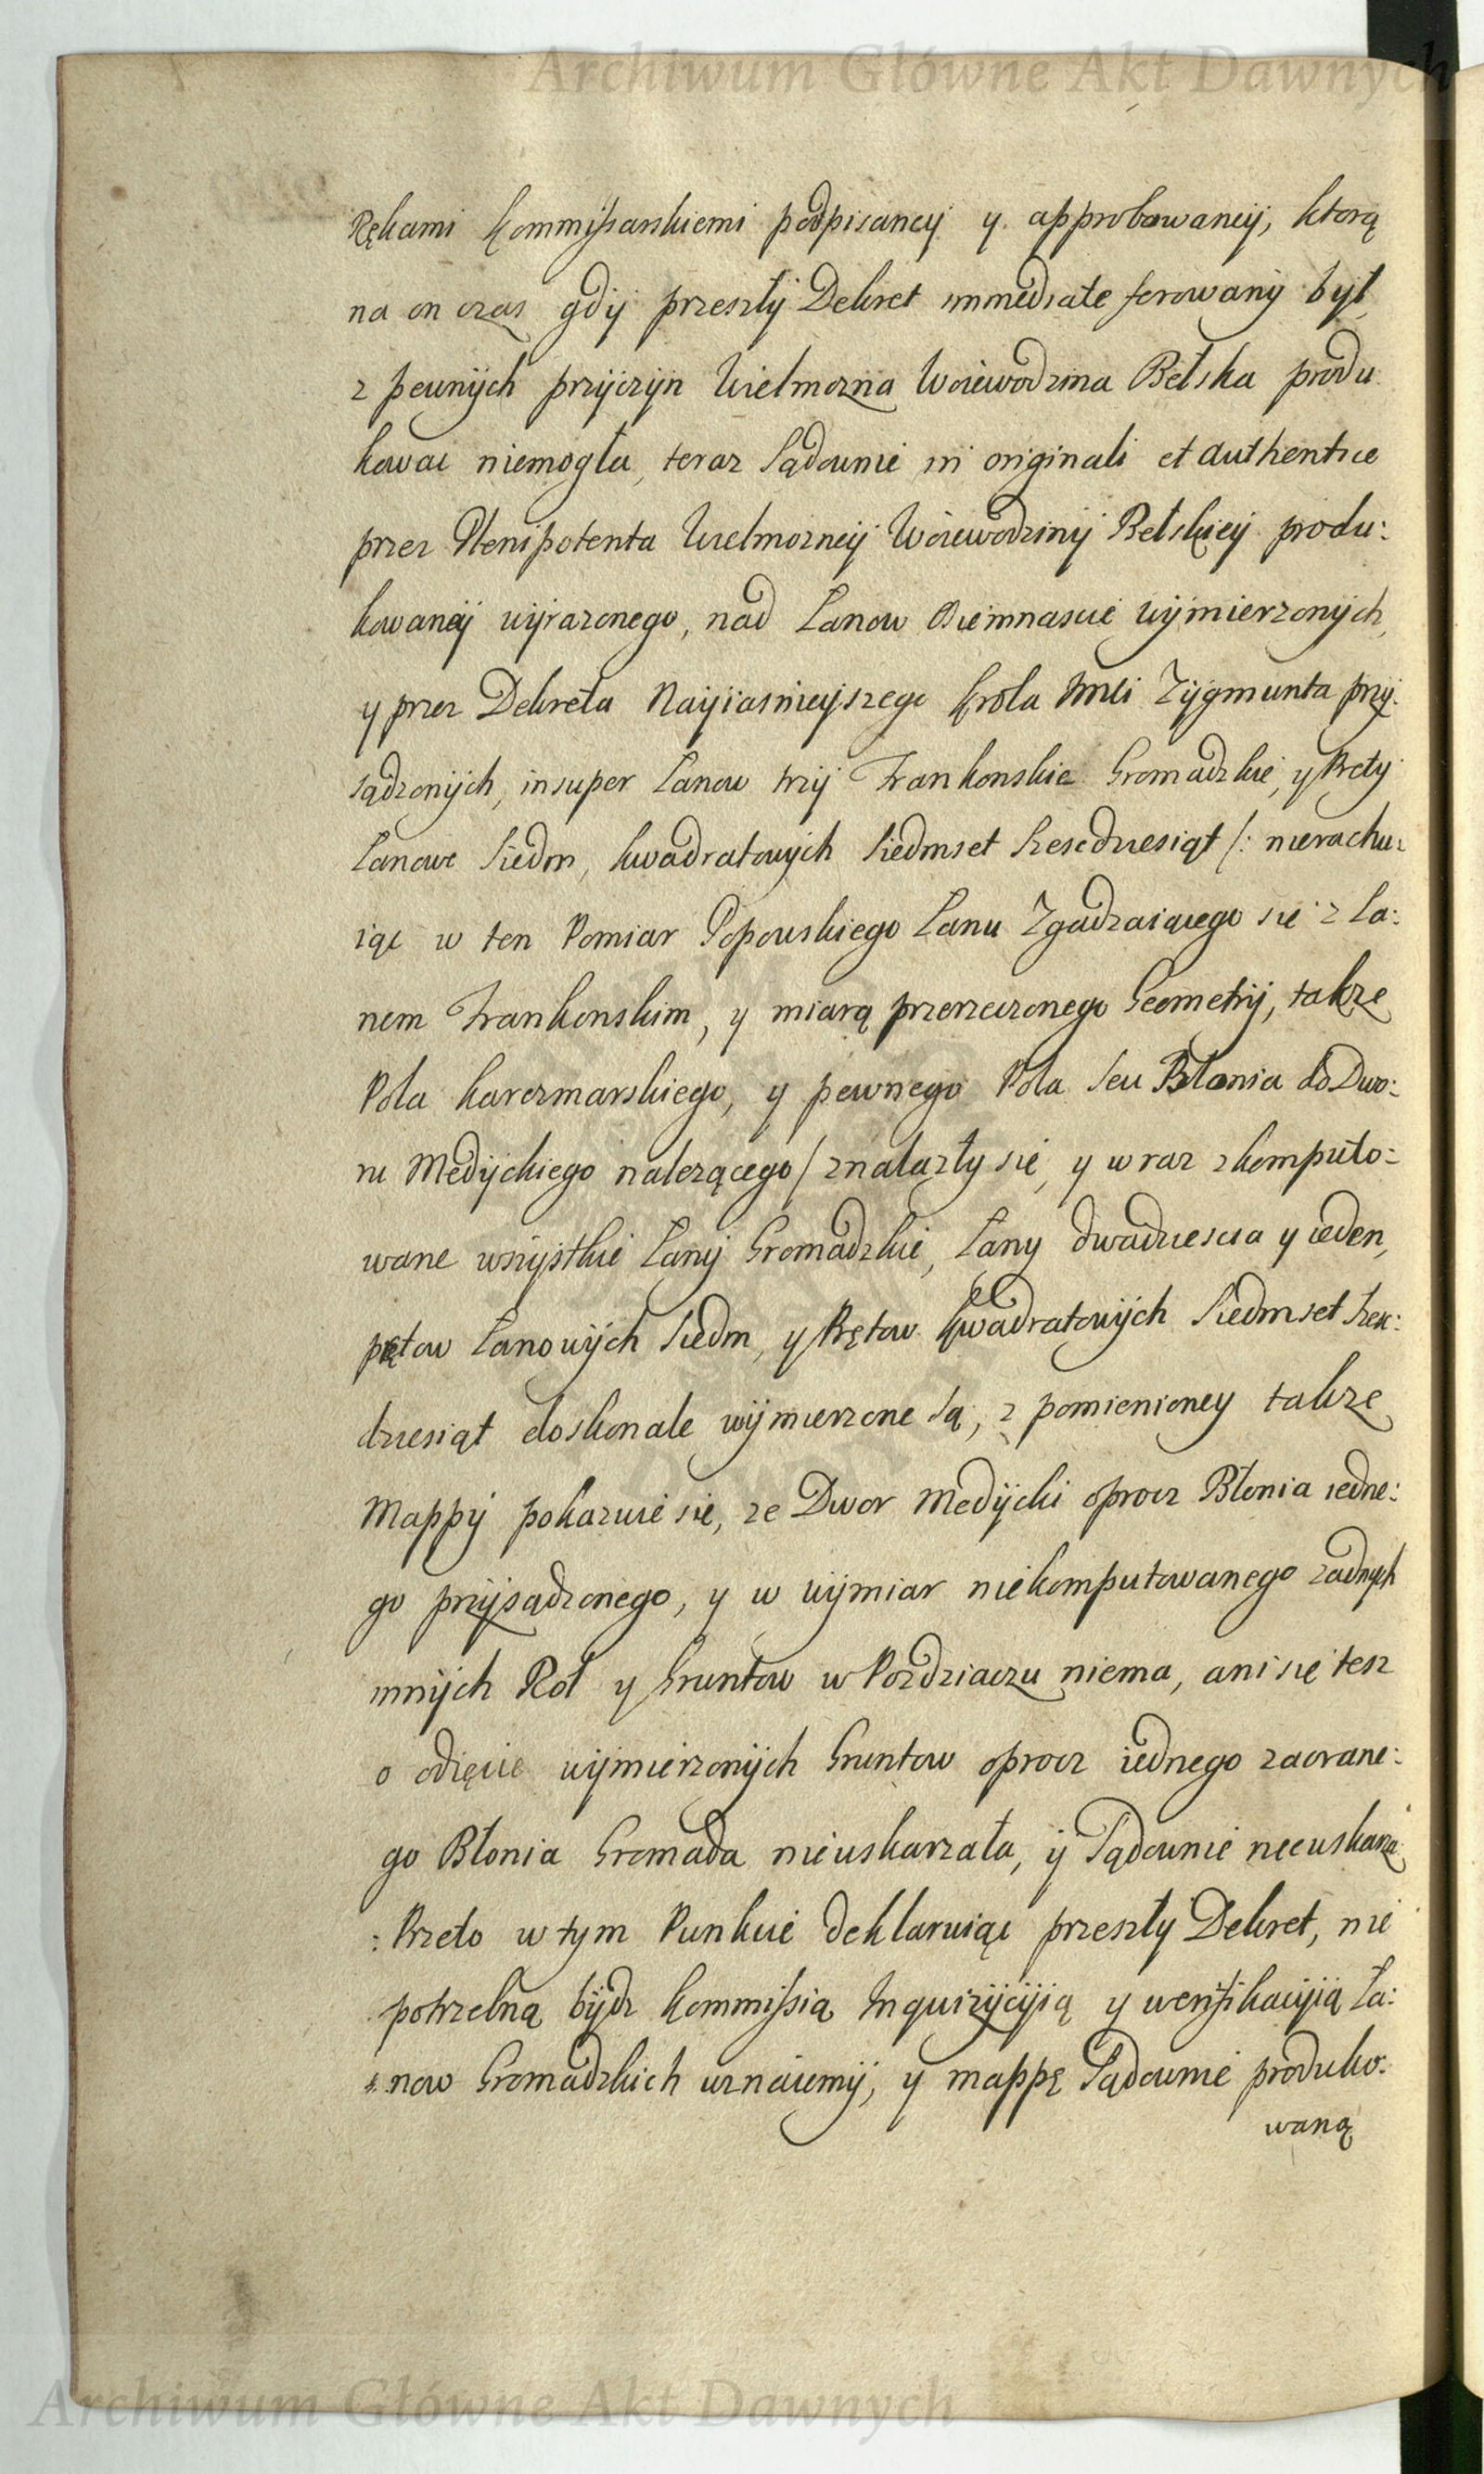 Archiwum Główne Akt Dawnych
Rękami Kommissarskiemi podpisaney y approbowaney, ktorą
na on czas gdy przeszły Dekret immediate ferowany był,
z pewnych przyczyn Wielmozna Woiewodzina Bełska produ
kowac niemogła, teraz Sądownie in originali et authentice
przez Plenipotenta Wielmozney Woiewodziny Bełskiey produ:
kowaney wyrazonego, nad Łanow Osiemnascie wymierzonych,
y przez Dekreta Nayiasnieyszego Krola Jmci Zygmunta przy:
sądzonych, insuper Łanow trzy Frankonskie Gromadzkie, y Prety
Łanowe Siedm, kwadratowych Siedmset Szescdziesiąt /: nierachu:
iąc w ten Pomiar Popowskiego Łanu Zgadzaiącego się z Ła:
nem Frankonskim, y miarą przerzeczonego Geometry, także
Pola karczmarskiego, y pewnego Pola seu Błonia do Dwo:
ru Medyckiego nalezącego / znalazły się, y wraz zkomputo:
wane wszystkie Łany Gromadzkie, Łany dwadziescia y ieden,
prętow Łanowych Siedm, y Prętow kwadratowych Siedmset Szesc:
dziesiąt doskonale wymierzone są, z pomienioney także
Mappy pokazuie się, ze Dwor Medycki oprocz Błonia iedne:
go przysądzonego, y w wymiar niekomputowanego zadnych
innych Rol y Gruntow w Pozdziaczu niema, ani się tesz
o odięcie wymierzonych Gruntow oprocz iednego zaorane:
go Błonia Gromada nieuskarzała, y Sądownie nieuskarza
: Przeto w tym Punkcie deklaruiąc przeszły Dekret, nie
potrzebną bydz Kommissią Inquizycyią y weryfikacyią Ła:
now Gromadzkich uznaiemy, y mappę Sądownie produko:
waną
Archiwum Główne Akt Dawnych